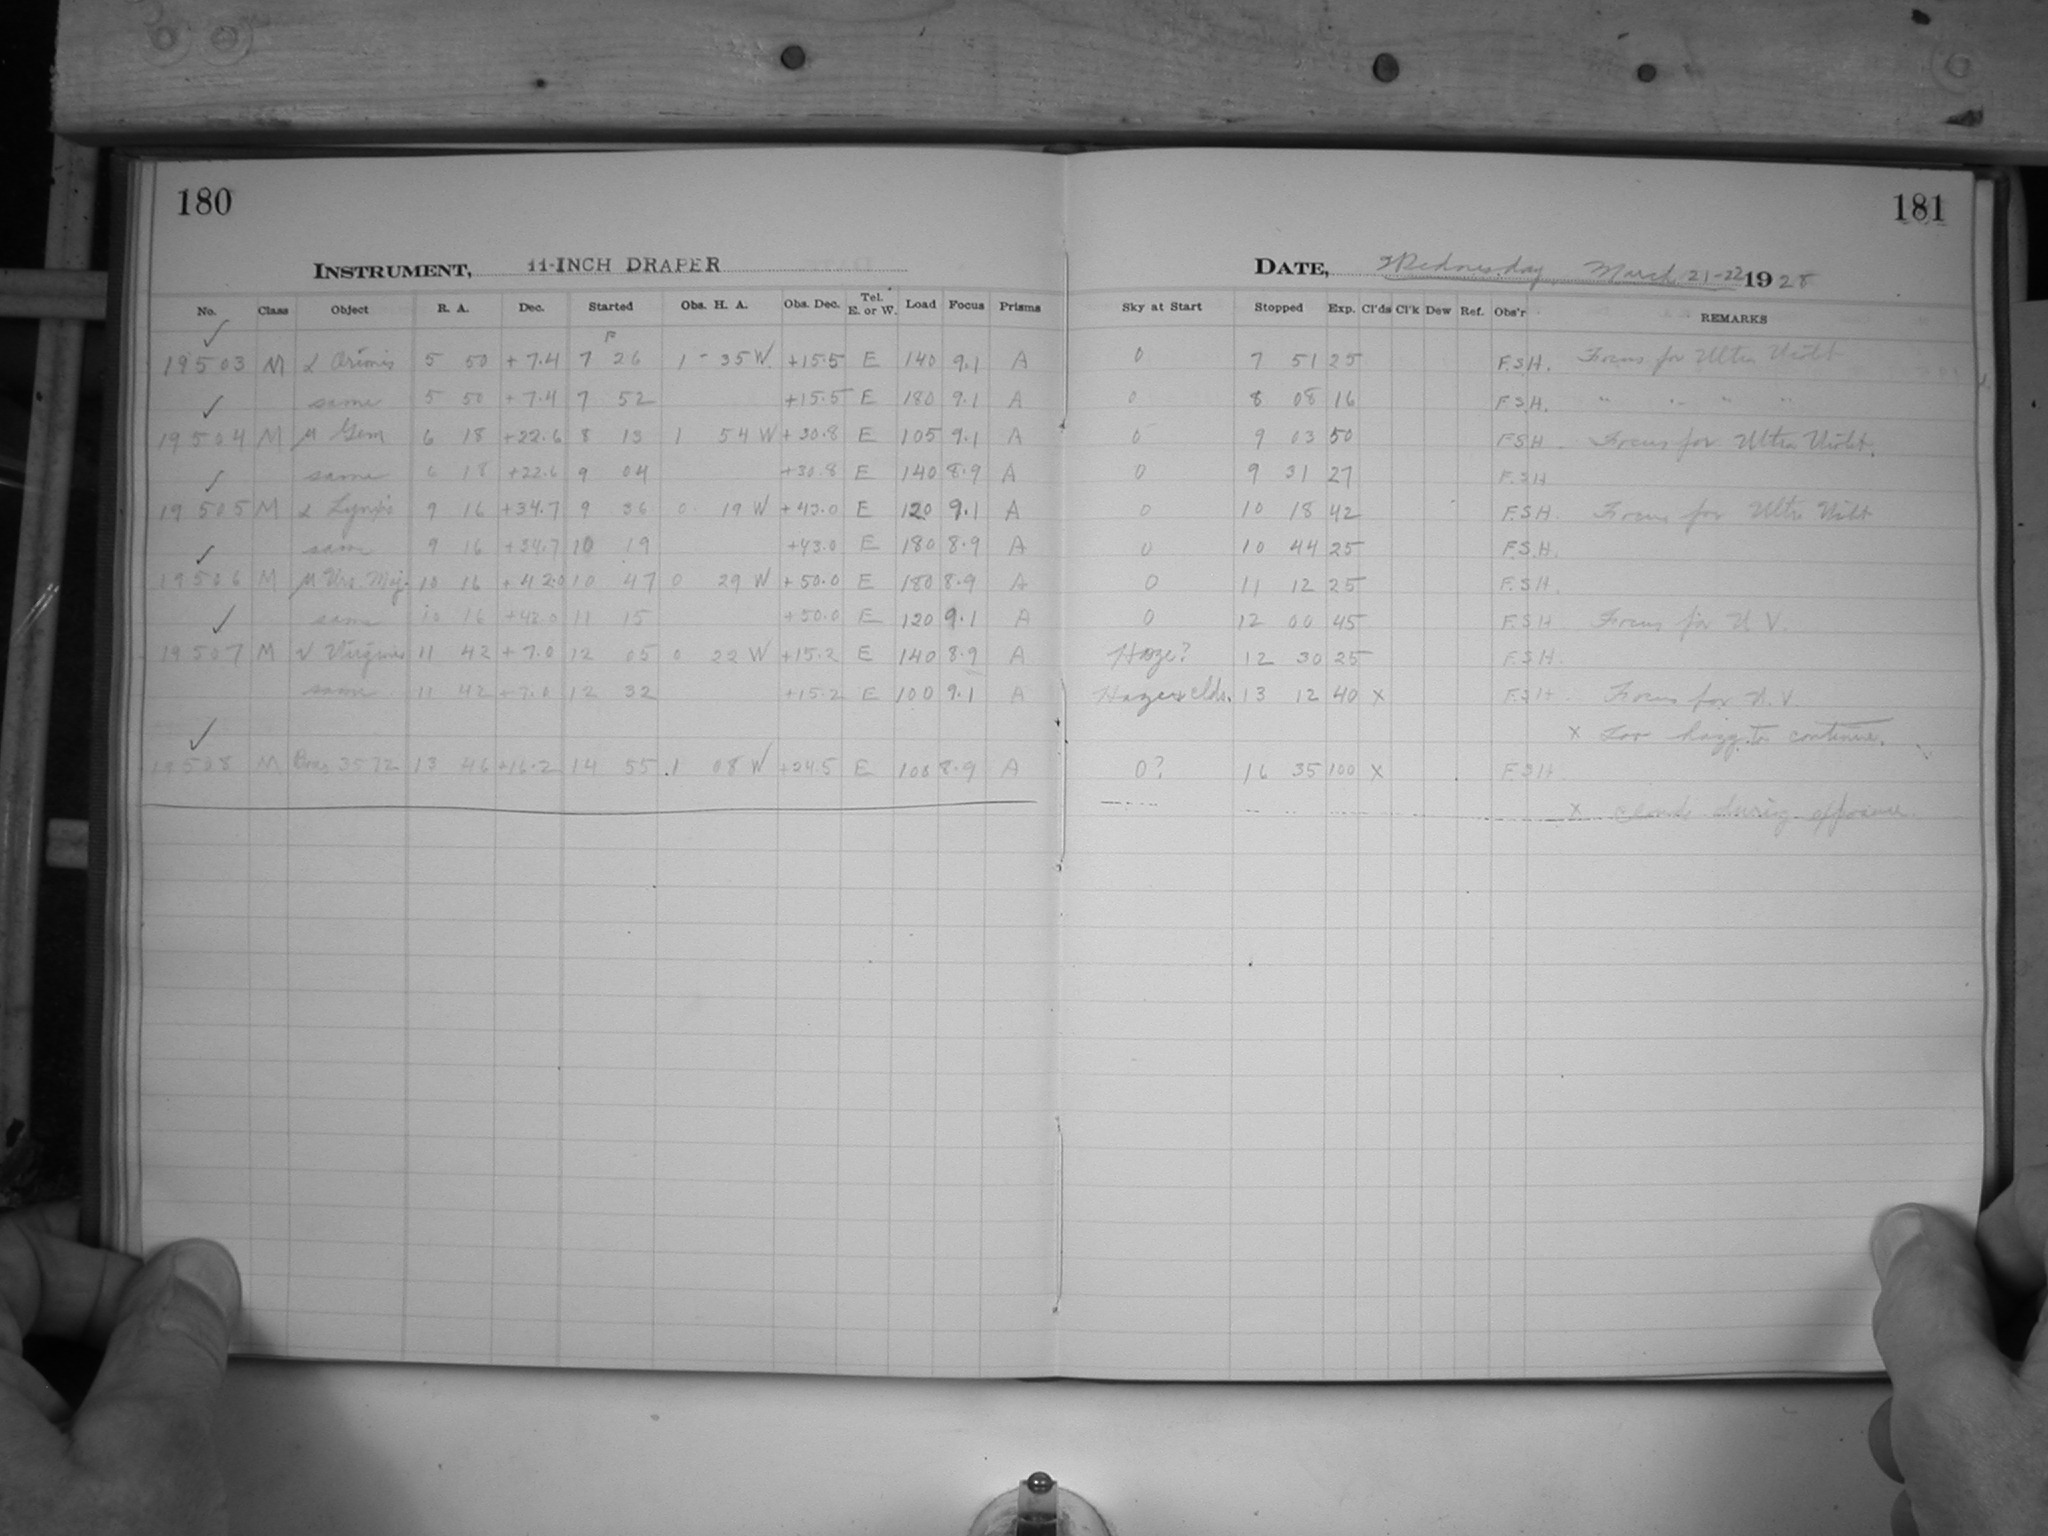 180
INSTRUMENT, 11-INCH DRAPER
No. Class Object R. A. Dec. Started Obs. H. A. Obs. Dec. Tel. E. or W. Load Focus Prisms
✓ F
19503 M α Orionis 5 50 +7.4 7 26 1 - 35 W. +15.5 E 140 9.1 A
same 5 50 +7.4 7 52 +15.5 E 180 9.1 A
✓
19504 M μ Gem 6 18 +22.6 8 13 1 54 W +30.8 E 105 9.1 A
same 6 18 +22.6 9 04 +30.8 E 140 8.9 A
✓
19505 M α Lyncis 9 16 +34.7 9 36 0 19 W +43.0 E 120 9.1 A
same 9 16 +34.7 10 19 +43.0 E 180 8.9 A
✓
19506 M μ Urs. Maj. 10 16 +42.0 10 47 0 29 W +50.0 E 180 8.9 A
same 10 16 +42.0 11 15 +50.0 E 120 9.1 A
✓
19507 M ν Virginis 11 42 +7.0 12 05 0 22 W +15.2 E 140 8.9 A
same 11 42 +7.0 12 32 +15.2 E 100 9.1 A
✓
19508 M Boss 3572 13 46 +16.2 14 55 1 08 W +24.5 E 100 8.9 A
181
DATE, Wednesday, March 21-22 1928
Sky at Start Stopped Exp. Cl'ds Cl'k Dew Ref. Obs'r REMARKS
0 7 51 25 F.S.H. Focus for Ultra Violet
0 8 08 16 F.S.H. " " " "
0 9 03 50 F.S.H. Focus for Ultra Violet.
0 9 31 27 F.S.H
0 10 18 42 F.S.H. Focus for Ultra Violet
0 10 44 25 F.S.H.
0 11 12 25 F.S.H.
0 12 00 45 F.S.H Focus for U V.
Haze? 12 30 25 F.S.H.
Haze & clds. 13 12 40 x F.S.H. Focus for U.V.
x Too hazy to continue.
0? 16 35 100 x F.S.H.
x Clouds during exposure.